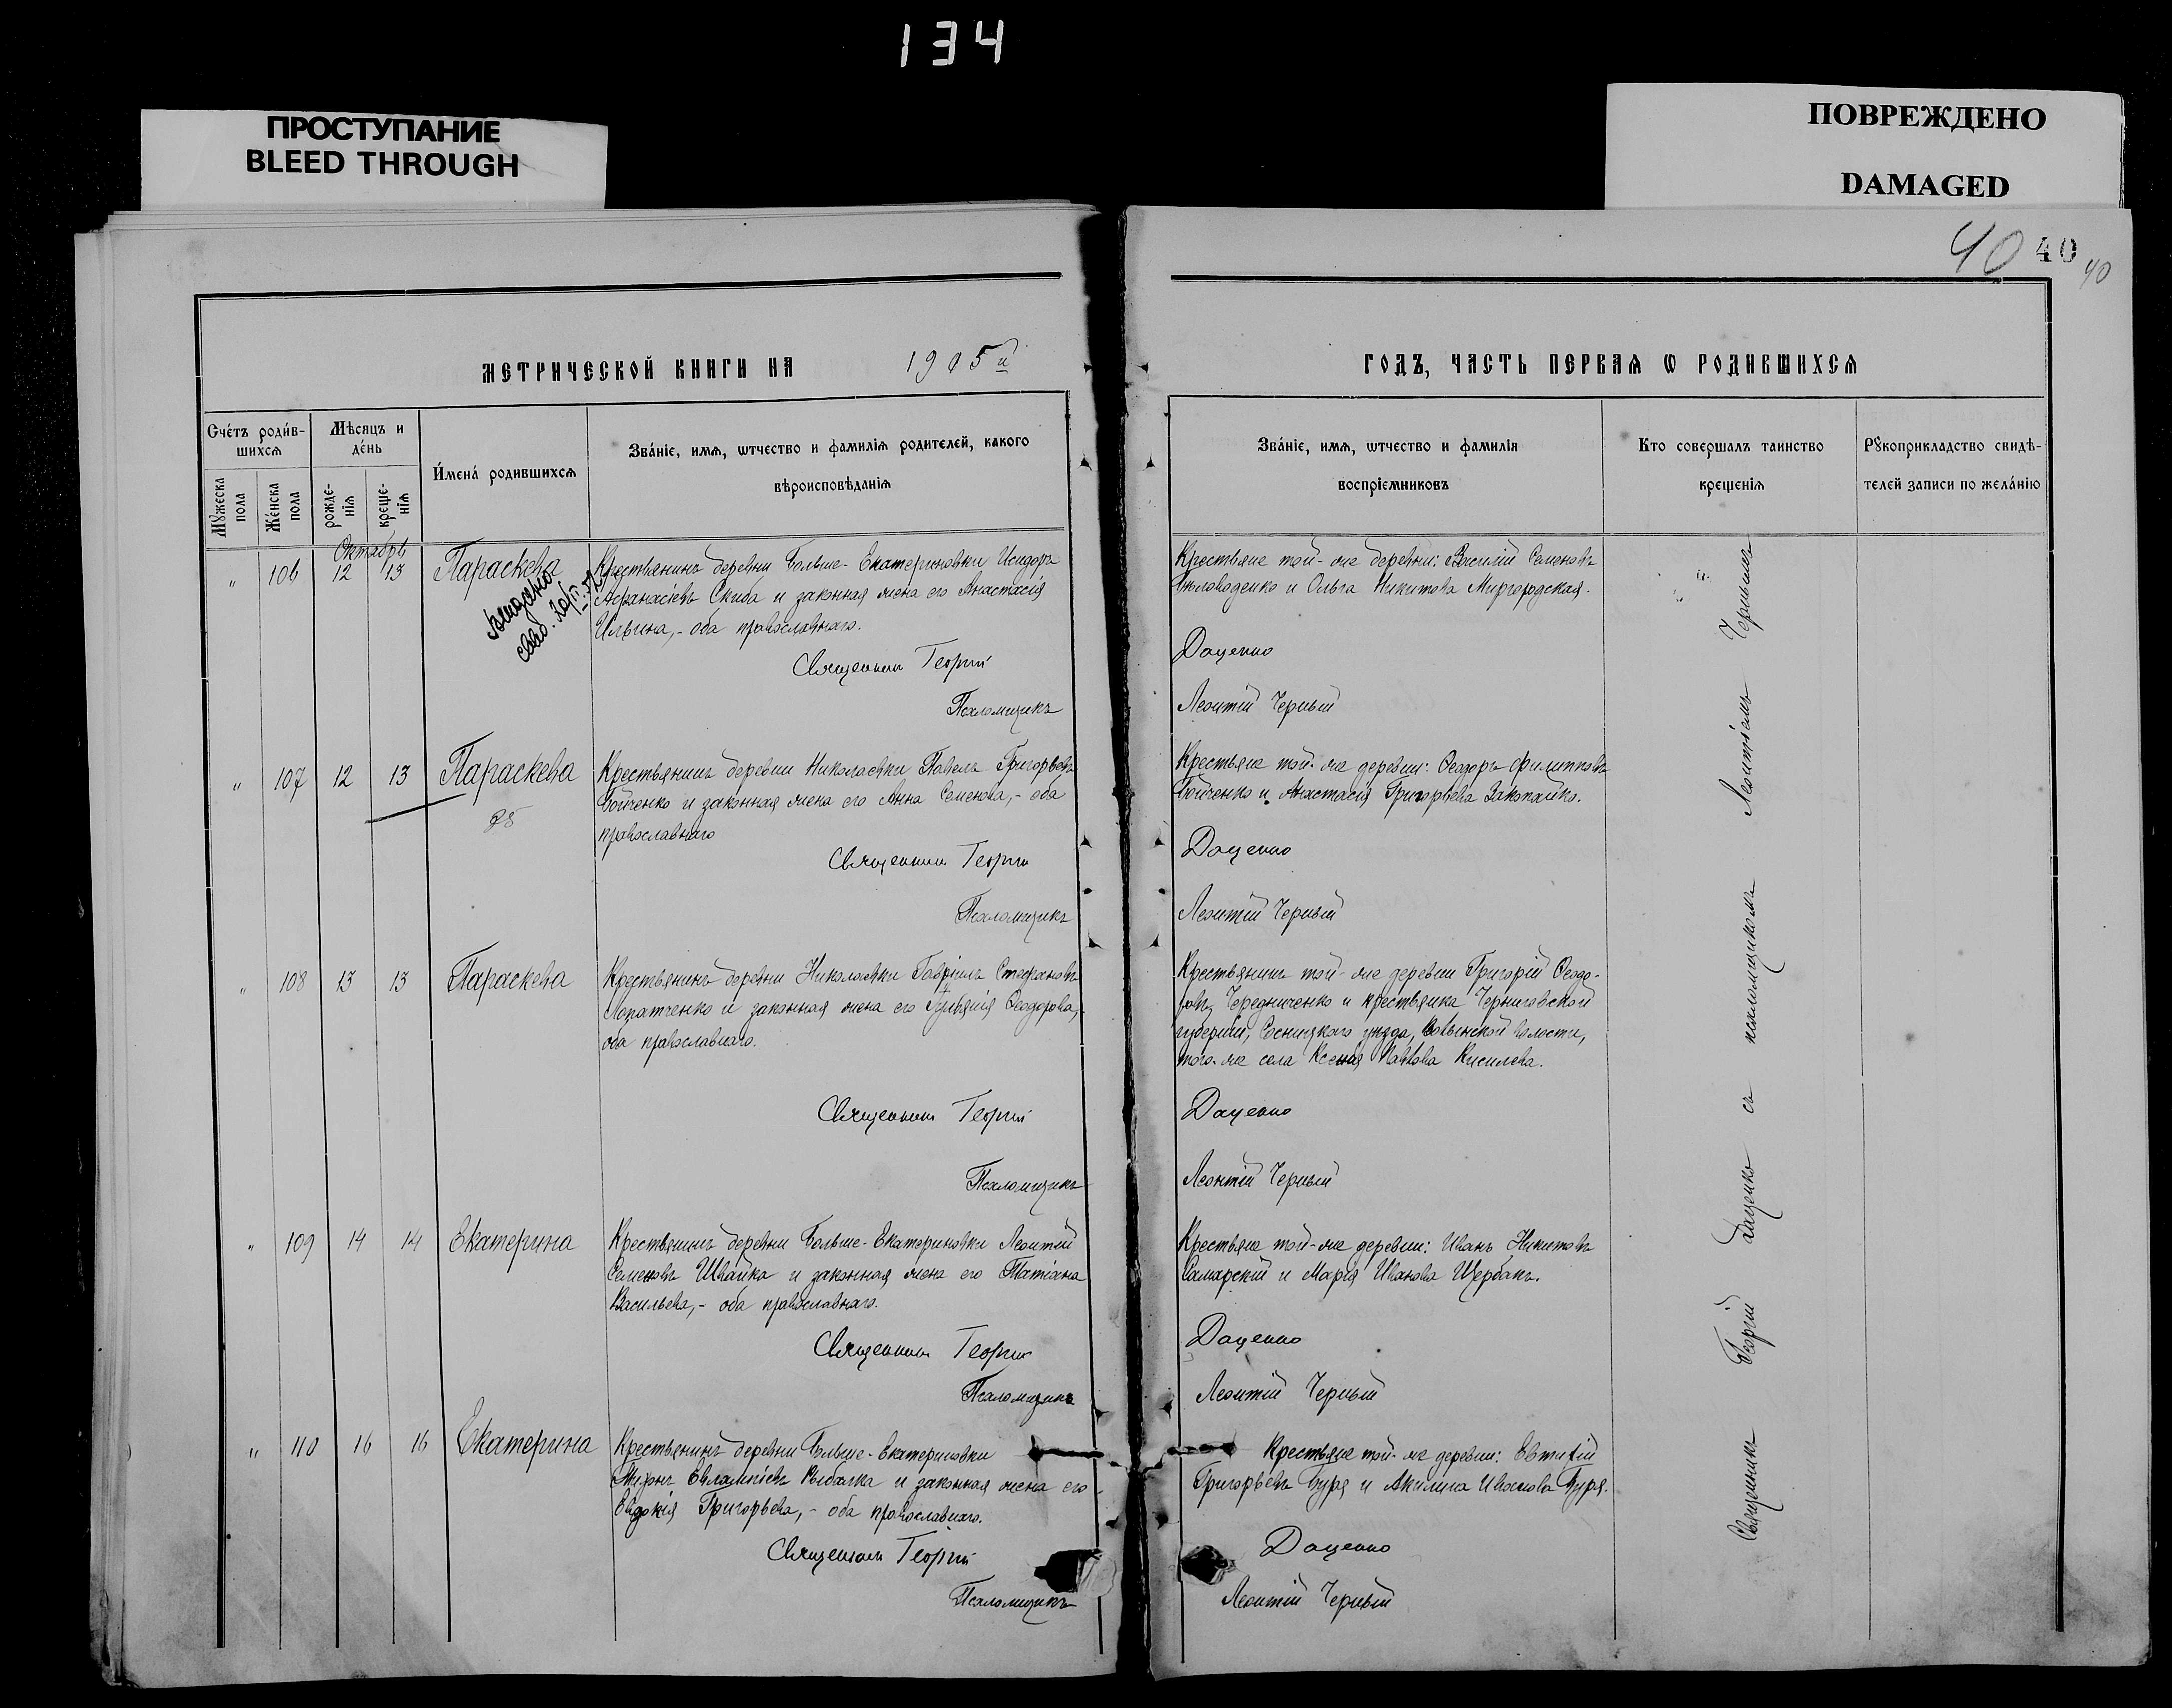 134
ПРОСТУПАНИЕ
BLEED THROUGH
ПОВРЕЖДЕНО
DAMAGED
40 40 40
МЕТРИЧЕСКОЙ КНИГИ НА 1905й
ГОДЪ, ЧАСТЬ ПЕРВАЯ Ѡ РОДИВШИХСЯ
Счетъ родив-
шихсѧ
Мѣсяцъ и
день
Имена родившихсѧ
Званіе, имѧ, ѡтчество и фамиліѧ родителей, какого
вѣроисповѣданіѧ
Мꙋжеска
пола
Женска
пола
рожде-
ніѧ
креще-
ніѧ
Званіе, имѧ, ѡтчество и фамиліѧ
воспріемниковъ
Кто совершалъ таинство
крещеніѧ
Рꙋкоприкладство свидѣ-
телей записи по желанію
Октябрь
" 106 12 13 Параскева
Крестьянинъ деревни Больше-Екатериновки Исидоръ
Афанасіевъ Скиба и законная жена его Анастасія
Ильина,- оба православнаго.
Выдано
свид.
Священникъ Георгій
Псаломщикъ
Крестьяне той-же деревни: Василій Семеновъ
и Ольга Никитова Миргородская.
Даценко
Леонтій Черный
" 107 12 13 Параскева
Крестьянинъ деревни Николаевки Павелъ Григорьевъ
Бойченко и законная жена его Анна Семенова,- оба
православнаго
Священникъ Георгій
Псаломщикъ
Крестьяне той-же деревни: Ѳеодоръ Филипповъ
Бойченко и Анастасія Григорьева Закопайко.
Даценко
Леонтій Черный
" 108 13 13 Параскева
Крестьянинъ деревни Николаевки Гавріилъ Стефановъ
Лопатченко и законная жена его Ѳеодорова,-
оба православнаго.
Священникъ Георгій
Псаломщикъ
Крестьянинъ той-же деревни Григорій Ѳеодо-
ровъ Чередниченко и крестьянка Черниговской
губерніи, Сосницкаго уѣзда, волости,
того-же села Ксенія Павлова Киселева.
Даценко
Леонтій Черный
" 109 14 14 Екатерина
Крестьянинъ деревни Больше-Екатериновки Леонтій
Семеновъ Швайка и законная жена его Татіана
Васильева,- оба православнаго.
Священникъ Георгій
Псаломщикъ
Крестьяне той-же деревни: Иванъ Никитовъ
Самарскій и Марія Иванова Щербакъ.
Даценко
Леонтій Черный
" 110 16 16 Екатерина
Крестьянинъ деревни Больше-Екатериновки
Евлампіевъ Рыбалка и законная жена его
Евдокія Григорьева,- оба православнаго.
Священникъ Георгій
Псаломщикъ
Крестьяне той-же деревни: Евтихій
Григорьевъ Буря и Акилина Иванова Буря.
Даценко
Леонтій Черный
Священникъ Георгій Даценко съ псаломщикомъ Леонтіемъ Чернымъ